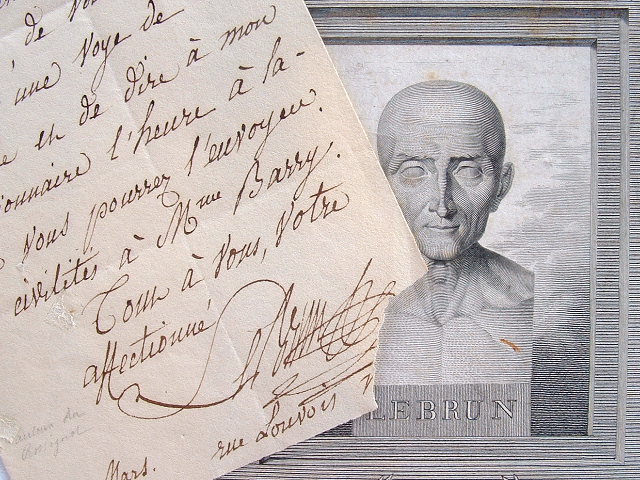 de
une voye de
et de dire à mon
l'heure à la-
vous pourrez l'envoyer.
civilités à Mme Barry.
Tout à vous, votre
affectionné
Le Brun
rue Louvois
Mars.
LEBRUN